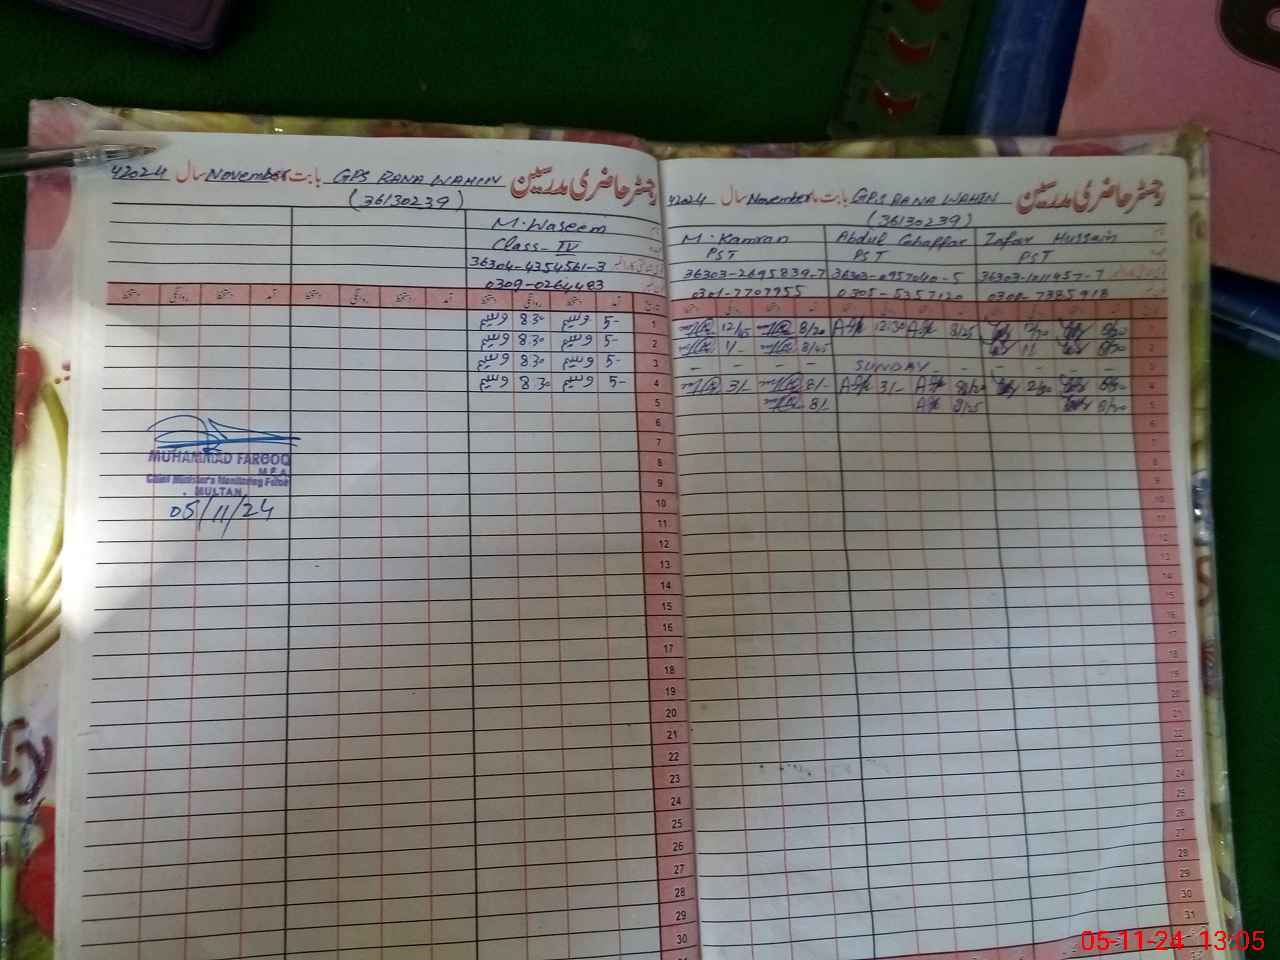 رجسٹر حاضری مدرسین GPS RANA WAHIN بابت November سال 2024
(36130239)
M. Waseem
Class-IV
36304-4354561-3
0309-0264483
وسیم 8.30 وسیم 5- 1
وسیم 8.30 وسیم 5- 2
وسیم 8.30 وسیم 5- 3
وسیم 8.30 وسیم 5- 4
5
6
7
8
9
10
11
12
13
14
15
16
17
18
19
20
21
22
23
24
25
26
27
28
29
30
MUHAMMAD FAROOQ
M.E.A
Chief Minister's Monitoring Force
MULTAN
05/11/24
رجسٹر حاضری مدرسین GPS RANA WAHIN بابت ماہ November سال 2024
(36130239)
M. Kamran Abdul Ghaffar Zafar Hussain
PST PST PST
36303-2695839-7 36303-0957040-5 36303-1011457-7
0301-7707955 0305-5357120 0300-7385918
12/15 8/20 12:30 8/25 1
1/- 8/45 2
- - - - SUNDAY - - - - 3
3/- 8/- 3/- 4
8/- 8/25 5
6
7
8
9
10
11
12
13
14
15
16
17
18
19
20
21
22
23
24
25
26
27
28
29
30
31
05-11-24 13:05